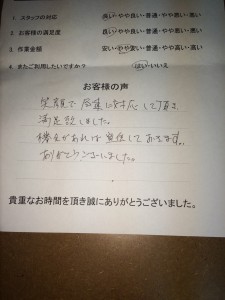 1 スタッフの対応 良い・やや良い・普通・やや悪い・悪い
2 お客様の満足度 良い・やや良い・普通・やや悪い・悪い
3 作業金額 安い・やや安い・普通・やや高い・高い
4 またご利用したいですか？ はい・いいえ
お客様の声
笑顔で 対応して頂き
満足致しました。
機会があれば
ありがとうございました。
貴重なお時間を頂き誠にありがとうございました。